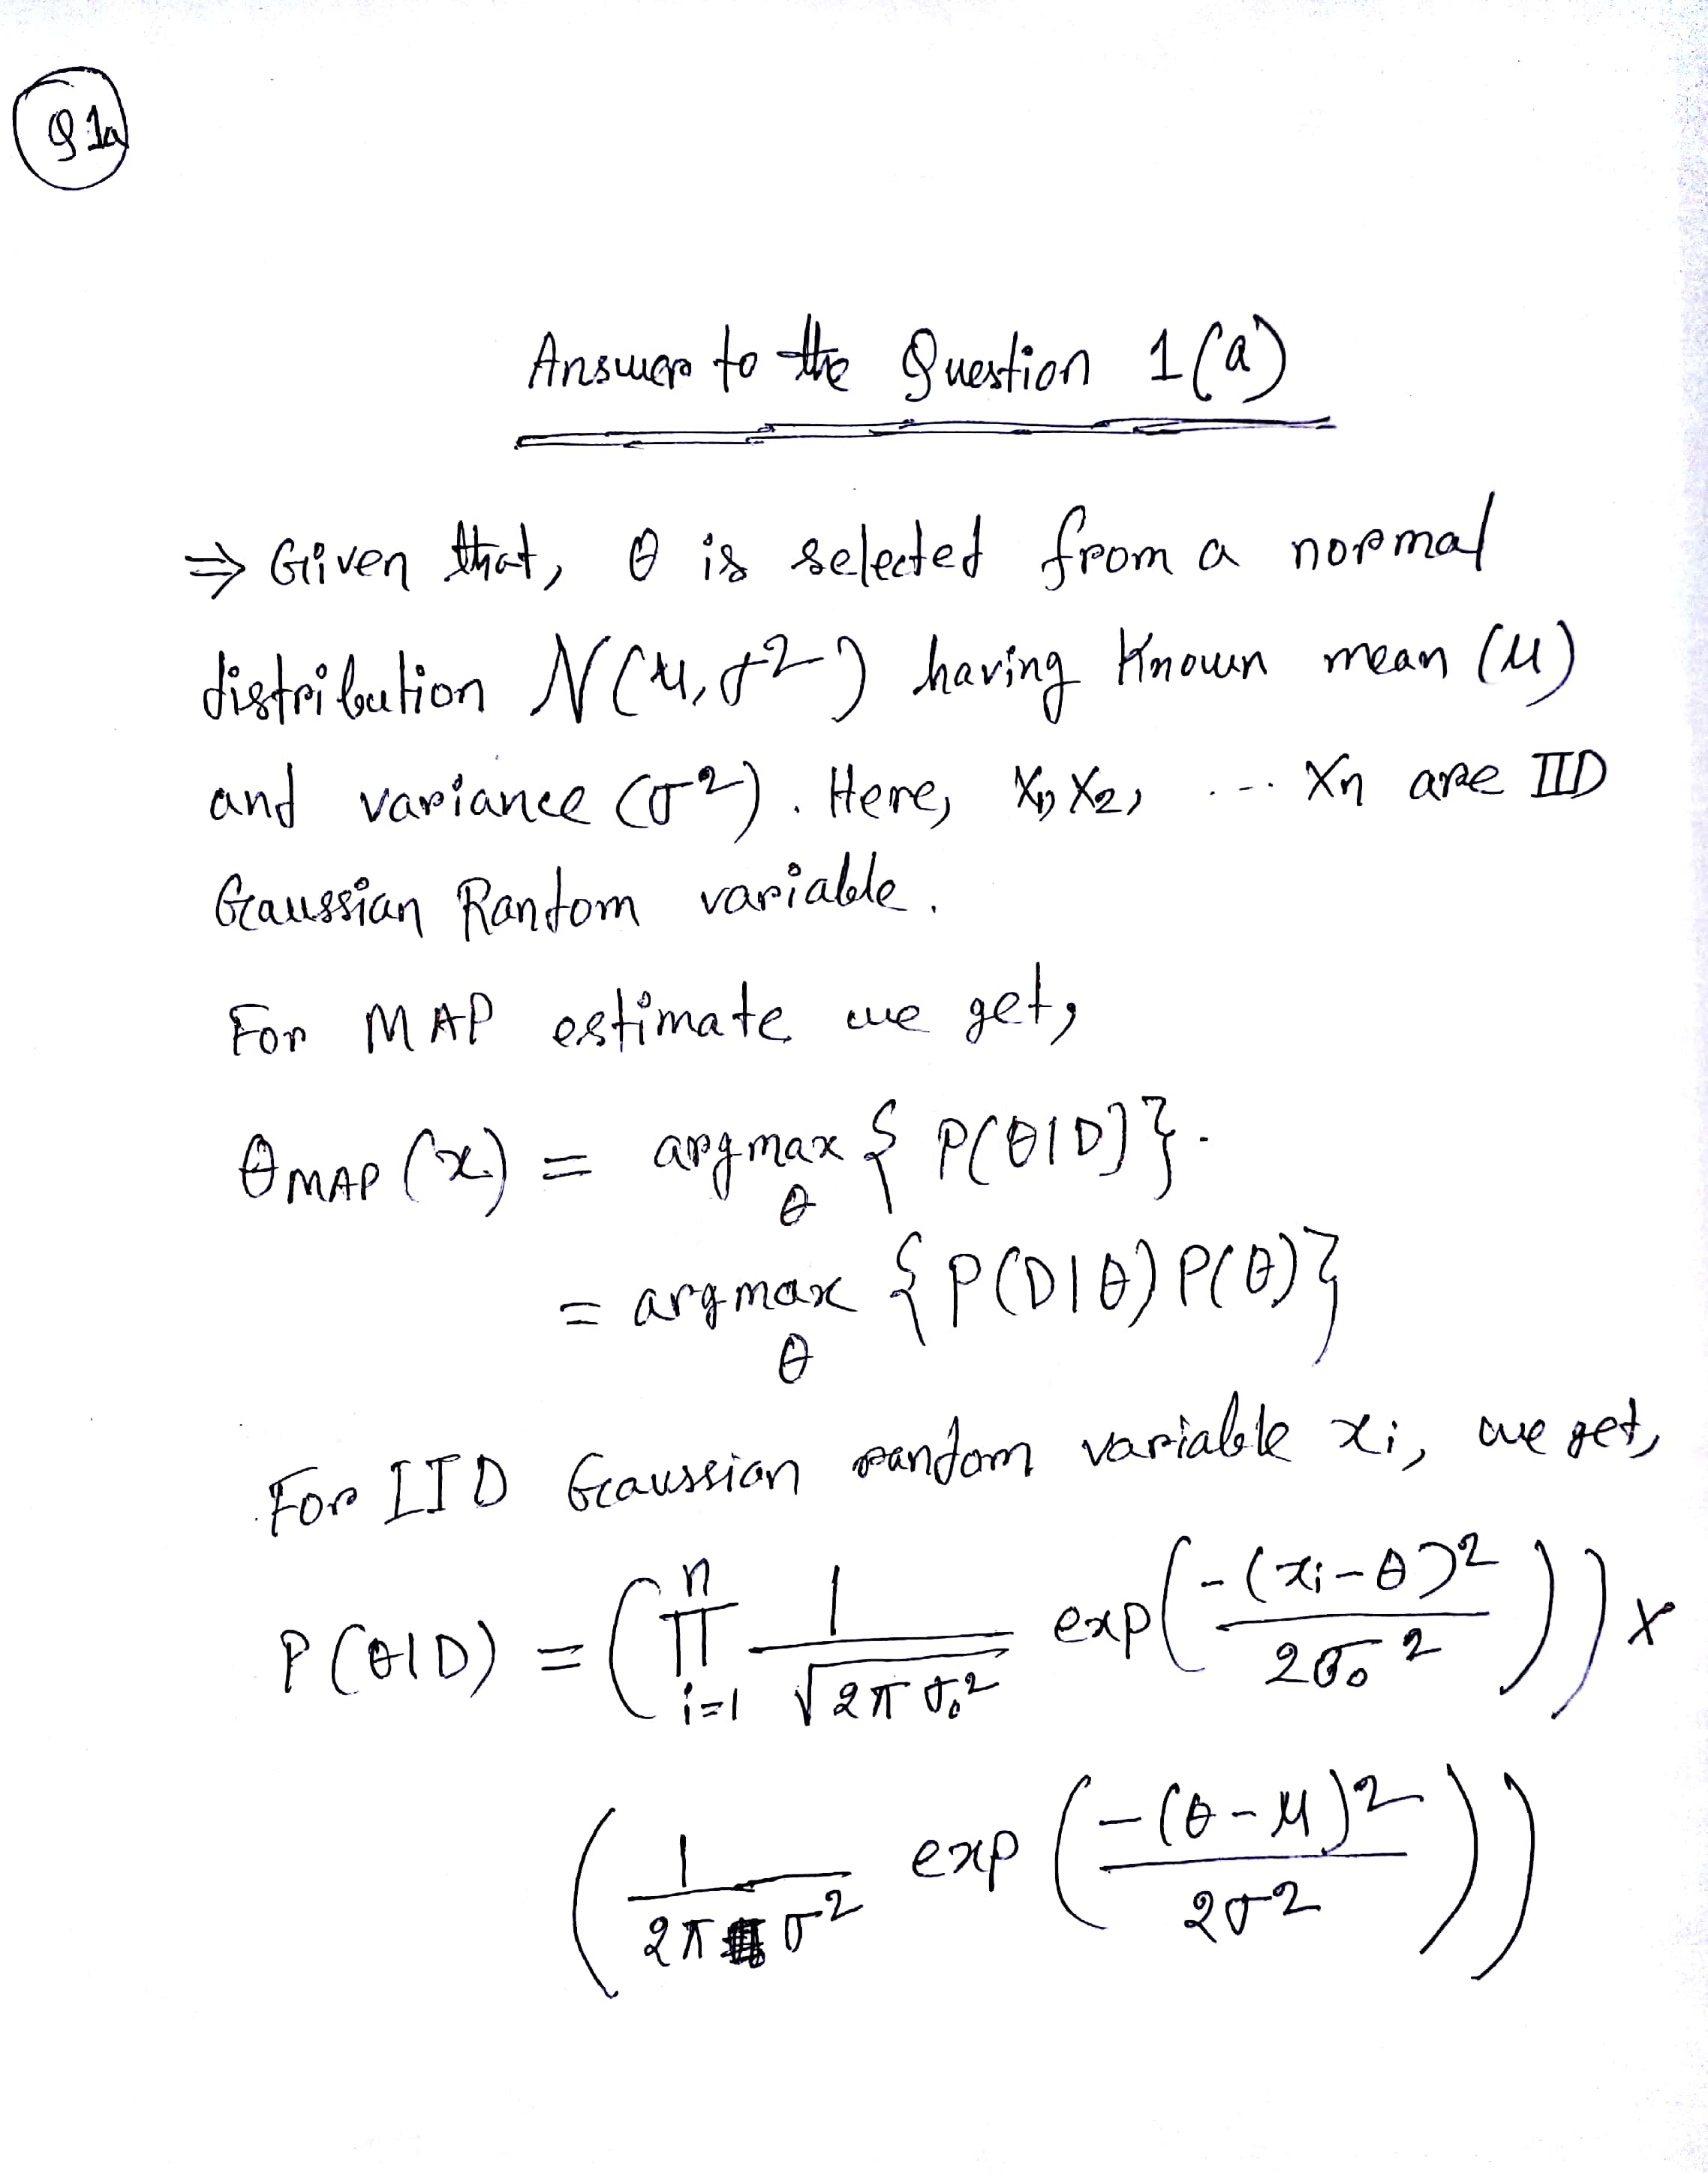 Q1a
Answer to the Question 1(a)
⇒ Given that, θ is selected from a normal
distribution N(μ, σ²) having known mean (μ)
and variance (σ²). Here, X₁, X₂, ... Xn are IID
Gaussian Random variable.
For MAP estimate we get,
θMAP (x) = argmax θ { P(θ|D)}.
= argmax θ { P(D|θ) P(θ)}
For IID Gaussian random variable xi, we get,
P(θ|D) = (∏ i=1 n 1/√(2πσ₀²) exp(-(xi-θ)²/2σ₀²)) ×
(1/2πσ² exp(-(θ-μ)²/2σ²))